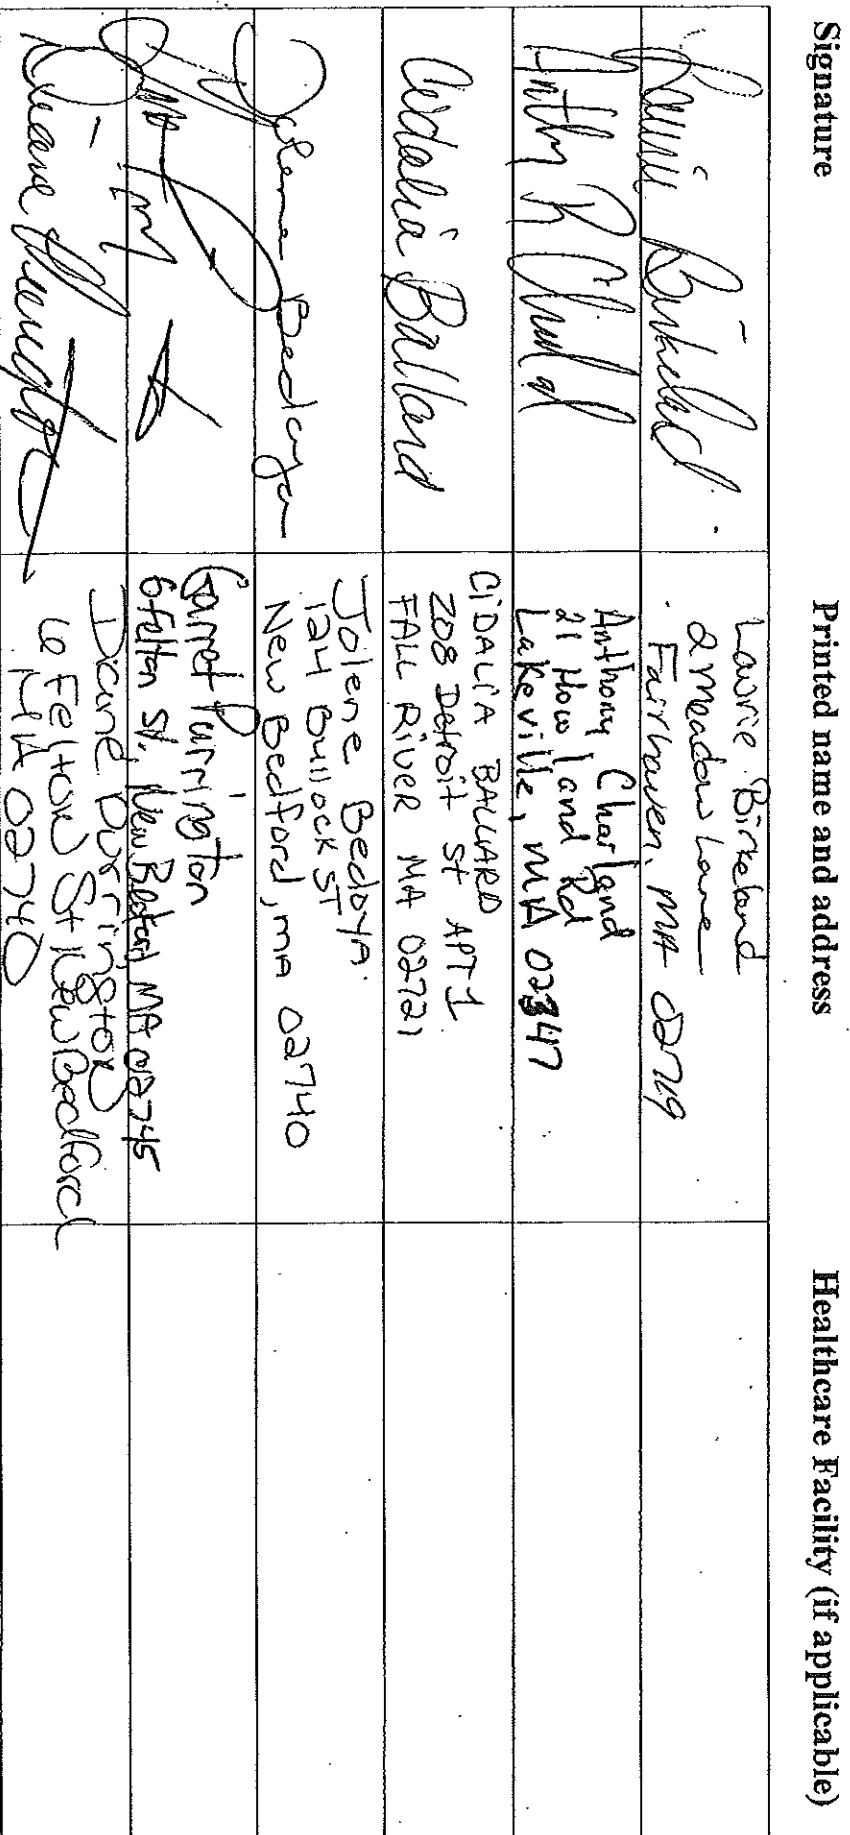 Signature Printed name and address Healthcare Facility (if applicable)
Laurie Birkeland
Laurie Birkeland
2 Meadow Lane
Fairhaven, MA 02719
Anthony Charland
21 Howland Rd
Lakeville, MA 02347
Cidalia Ballard
CiDALiA BALLARD
208 Detroit St APT 1
FALL RiVER MA 02721
Jolene Bedoya
Jolene BedoyA
124 Bullock ST
New Bedford, MA 02740
Garret Purrington
6 Felton St. New Bedford MA 02745
Diane Purrington
Diane Purrington
6 Felton St New Bedford
MA 02740